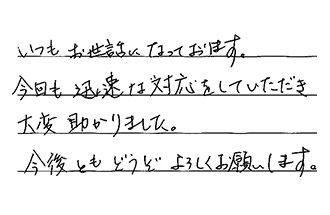 いつもお世話になっております。
今回も迅速な対応をしていただき
大変助かりました。
今後ともどうぞよろしくお願いします。